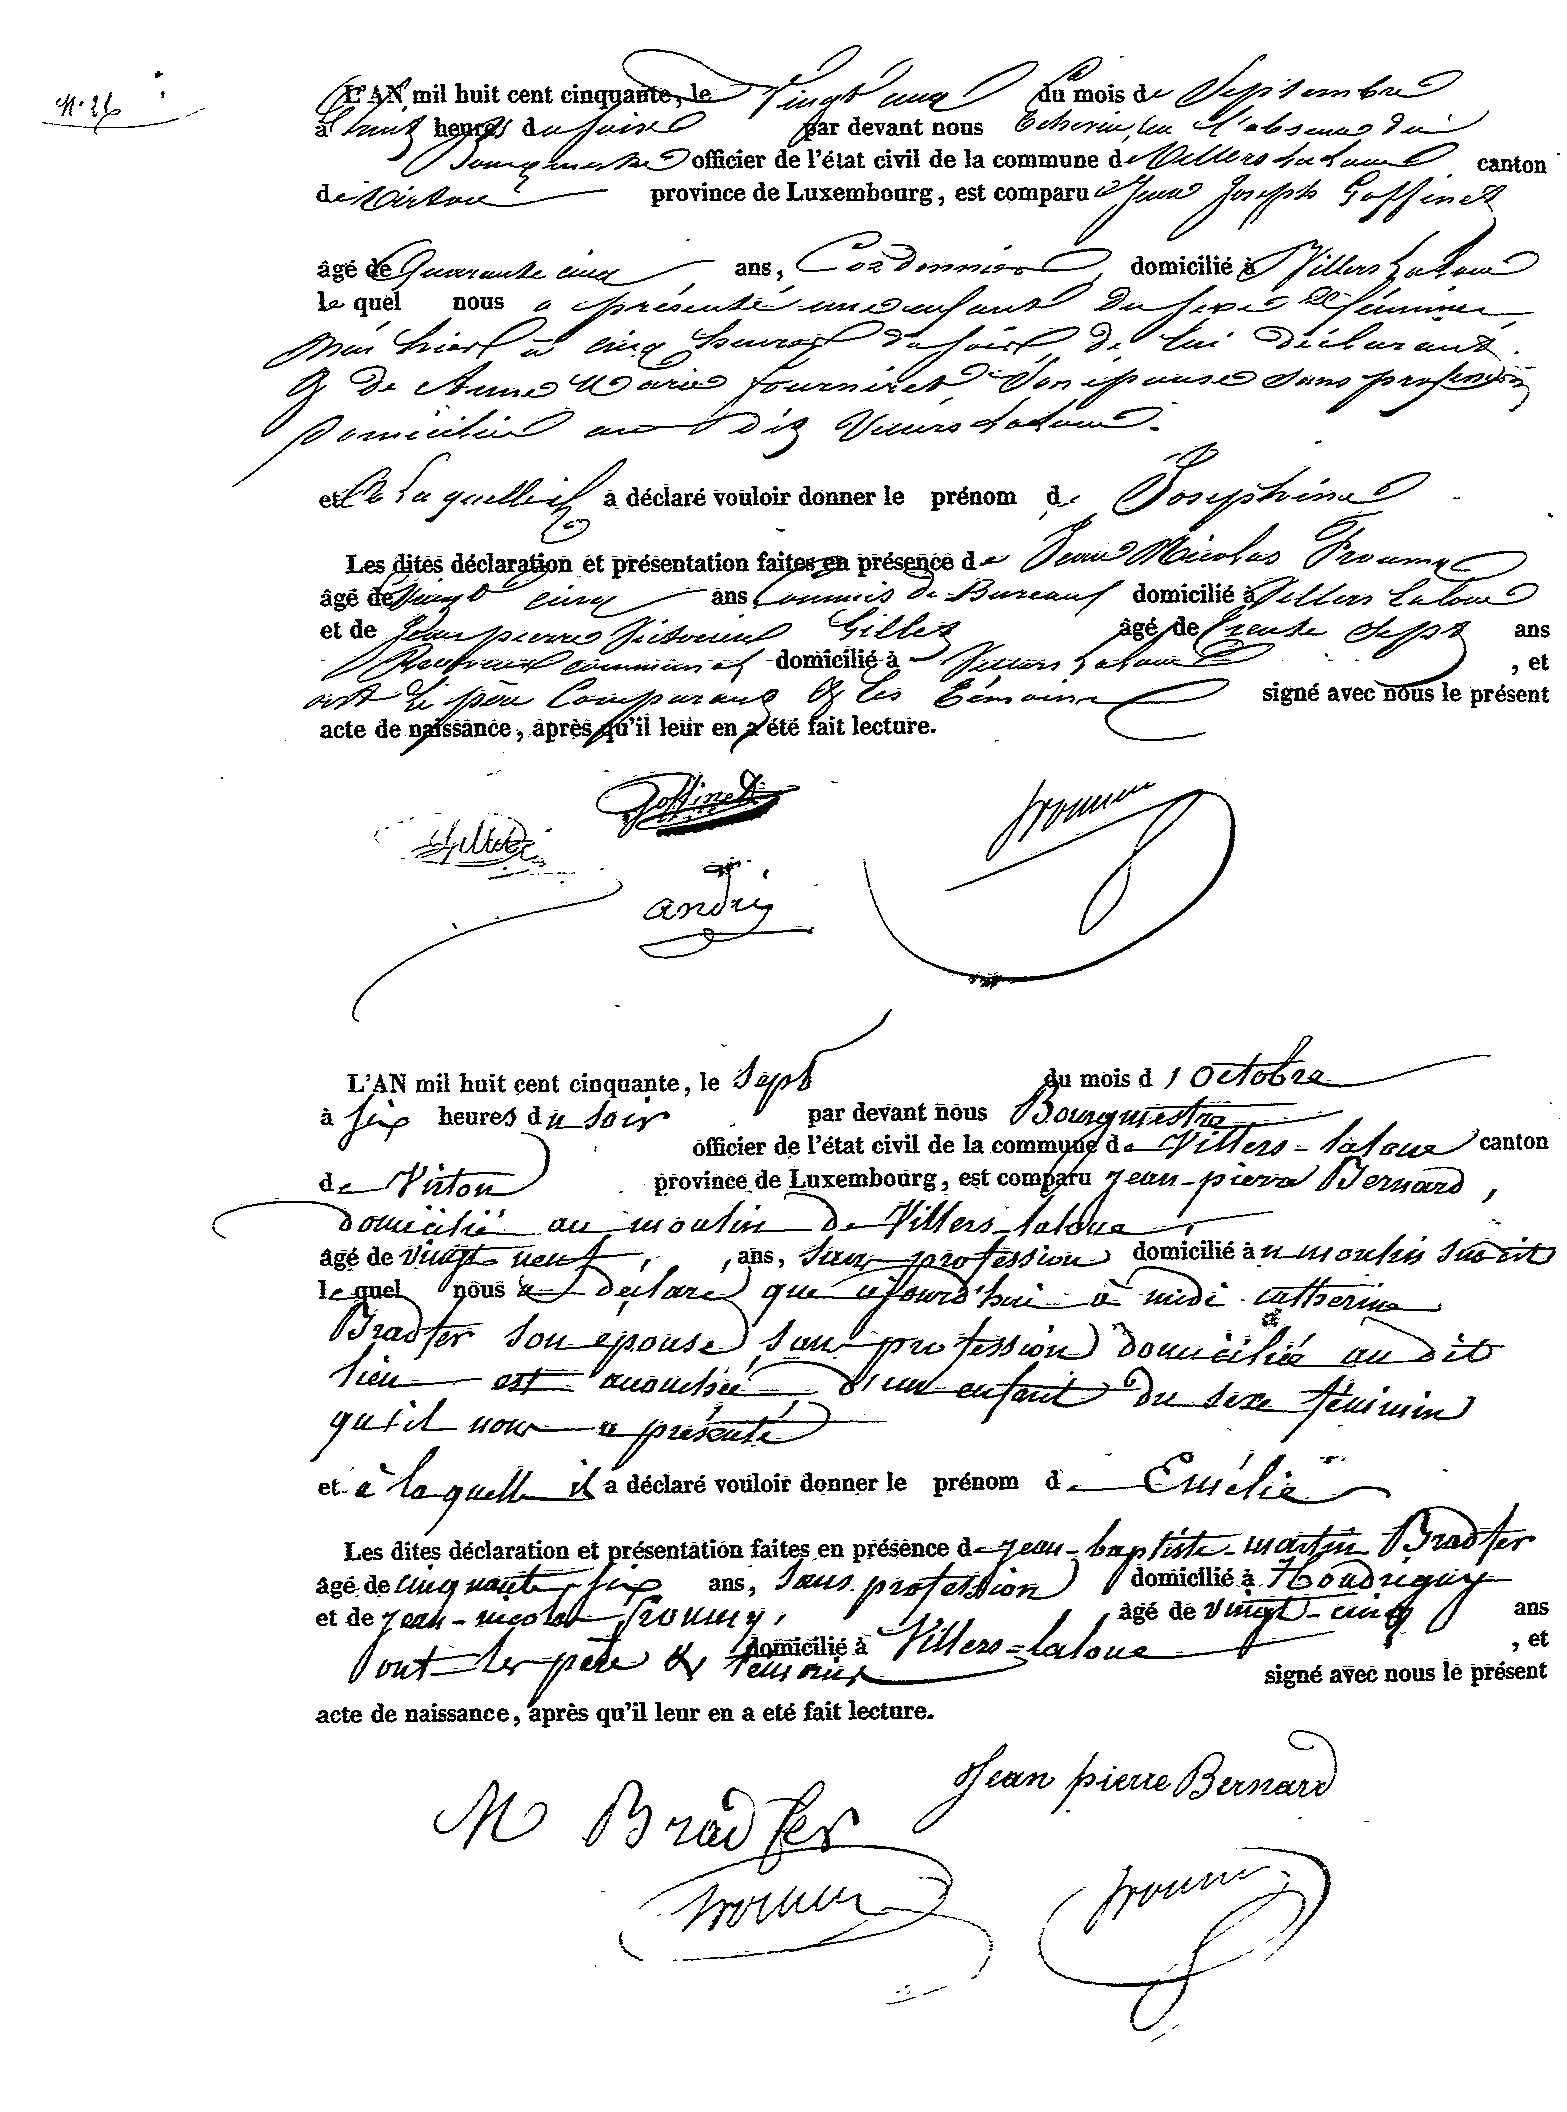 N. 26
L'AN mil huit cent cinquante, le Vingt cinq du mois de Septembre
à huit heures du soir par devant nous Echevin, en l'absence du
Bourgmestre officier de l'état civil de la commune de Villers laloue canton
de Virton province de Luxembourg, est comparu Jean Joseph Goffinet
âgé de Quarante cinq ans, Cordonnier domicilié à Villers laloue
le quel nous a présenté une enfant du sexe féminin
née hier à cinq heures du soir de lui déclarant
& de Anne Marie Fourniret son épouse sans profession
domiciliée au dit Villers laloue.
et à la quelle il a déclaré vouloir donner le prénom de Josephine
Les dites déclaration et présentation faites en présence de Jean Nicolas Froumy
âgé de Vingt cinq ans, Commis de Bureau domicilié à Villers laloue
et de Jean pierre Victorien Gillet âgé de trente sept ans
Receveur communal domicilié à Villers laloue , et
ont le père Comparant & les témoins signé avec nous le présent
acte de naissance, après qu'il leur en a été fait lecture.
Goffinet
Gillet
Froumy
andré
L'AN mil huit cent cinquante, le Sept du mois d'octobre
à six heures du soir par devant nous Bourgmestre
officier de l'état civil de la commune de Villers-laloue canton
de Virton province de Luxembourg, est comparu jean-pierre Bernard,
domicilié au moulin de Villers-laloue,
âgé de vingt neuf, ans, sans profession domicilié à u moulin susdit
le quel nous a déclaré que cejourd'hui à midi catherine
Bradfer son épouse sans profession domiciliée au dit
lieu est accouchée d'un enfant du sexe féminin
qu'il nous a présenté
et à laquelle il a déclaré vouloir donner le prénom de Emélie
Les dites déclaration et présentation faites en présence de jean-baptiste-martin Bradfer
âgé de cinquante-six ans, sans profession domicilié à Houdrigny
et de jean-nicolas Froumy, âgé de vingt-cinq ans
domicilié à Villers-laloue , et
ont les père & témoins signé avec nous le présent
acte de naissance, après qu'il leur en a eté fait lecture.
Jean pierre Bernard
M Bradfer
Froumy
Froumy